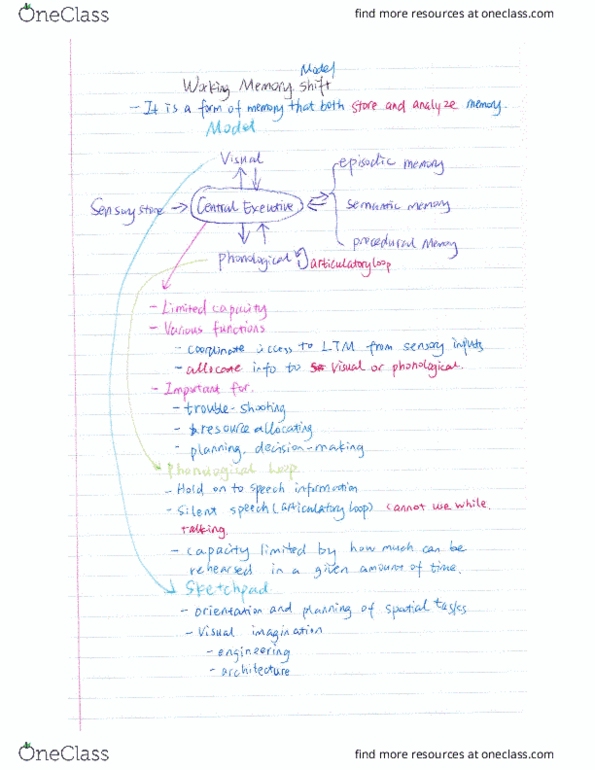 OneClass
find more resources at oneclass.com
Model
Working Memory Shift
- It is a form of memory that both store and analyze memory.
Model
Visual
episodic memory
Sensory store → Central Executive
semantic memory
procedural memory
phonological
articulatory loop
- Limited capacity
- Various functions
- coordinate access to LTM from sensory inputs
- allocate info to visual or phonological.
- Important for.
- trouble-shooting
- resource allocating
- planning, decision-making
Phonological Loop
- Hold on to speech information
- Silent speech (articulatory loop) cannot use while
talking.
- capacity limited by how much can be
rehearsed in a given amount of time.
Sketchpad
- orientation and planning of spatial tasks
- Visual imagination
- engineering
- architecture
OneClass
find more resources at oneclass.com